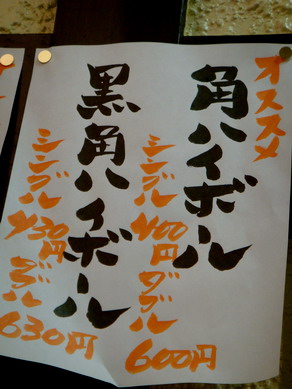 オススメ
角ハイボール
シングル 400円 ダブル
600円
黒角ハイボール
シングル 430円 ダブル
630円